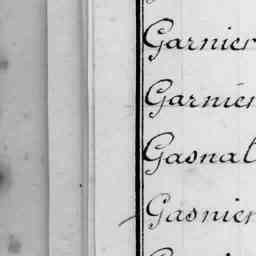 Garnier
Garnier
Gasnal
Gasnier